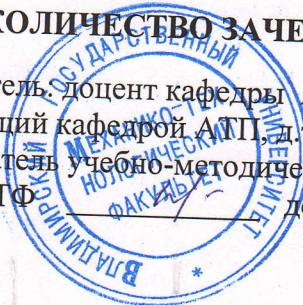 КОЛИЧЕСТВО ЗАЧЕ
тель: доцент кафедры
щий кафедрой АТП, д.
атель учебно-методиче
ТФ до
ВЛАДИМИРСКИЙ ГОСУДАРСТВЕННЫЙ УНИВЕРСИТЕТ
МЕХАНИКО-ТЕХ
НОЛОГИЧЕСКИЙ
ФАКУЛЬТЕТ